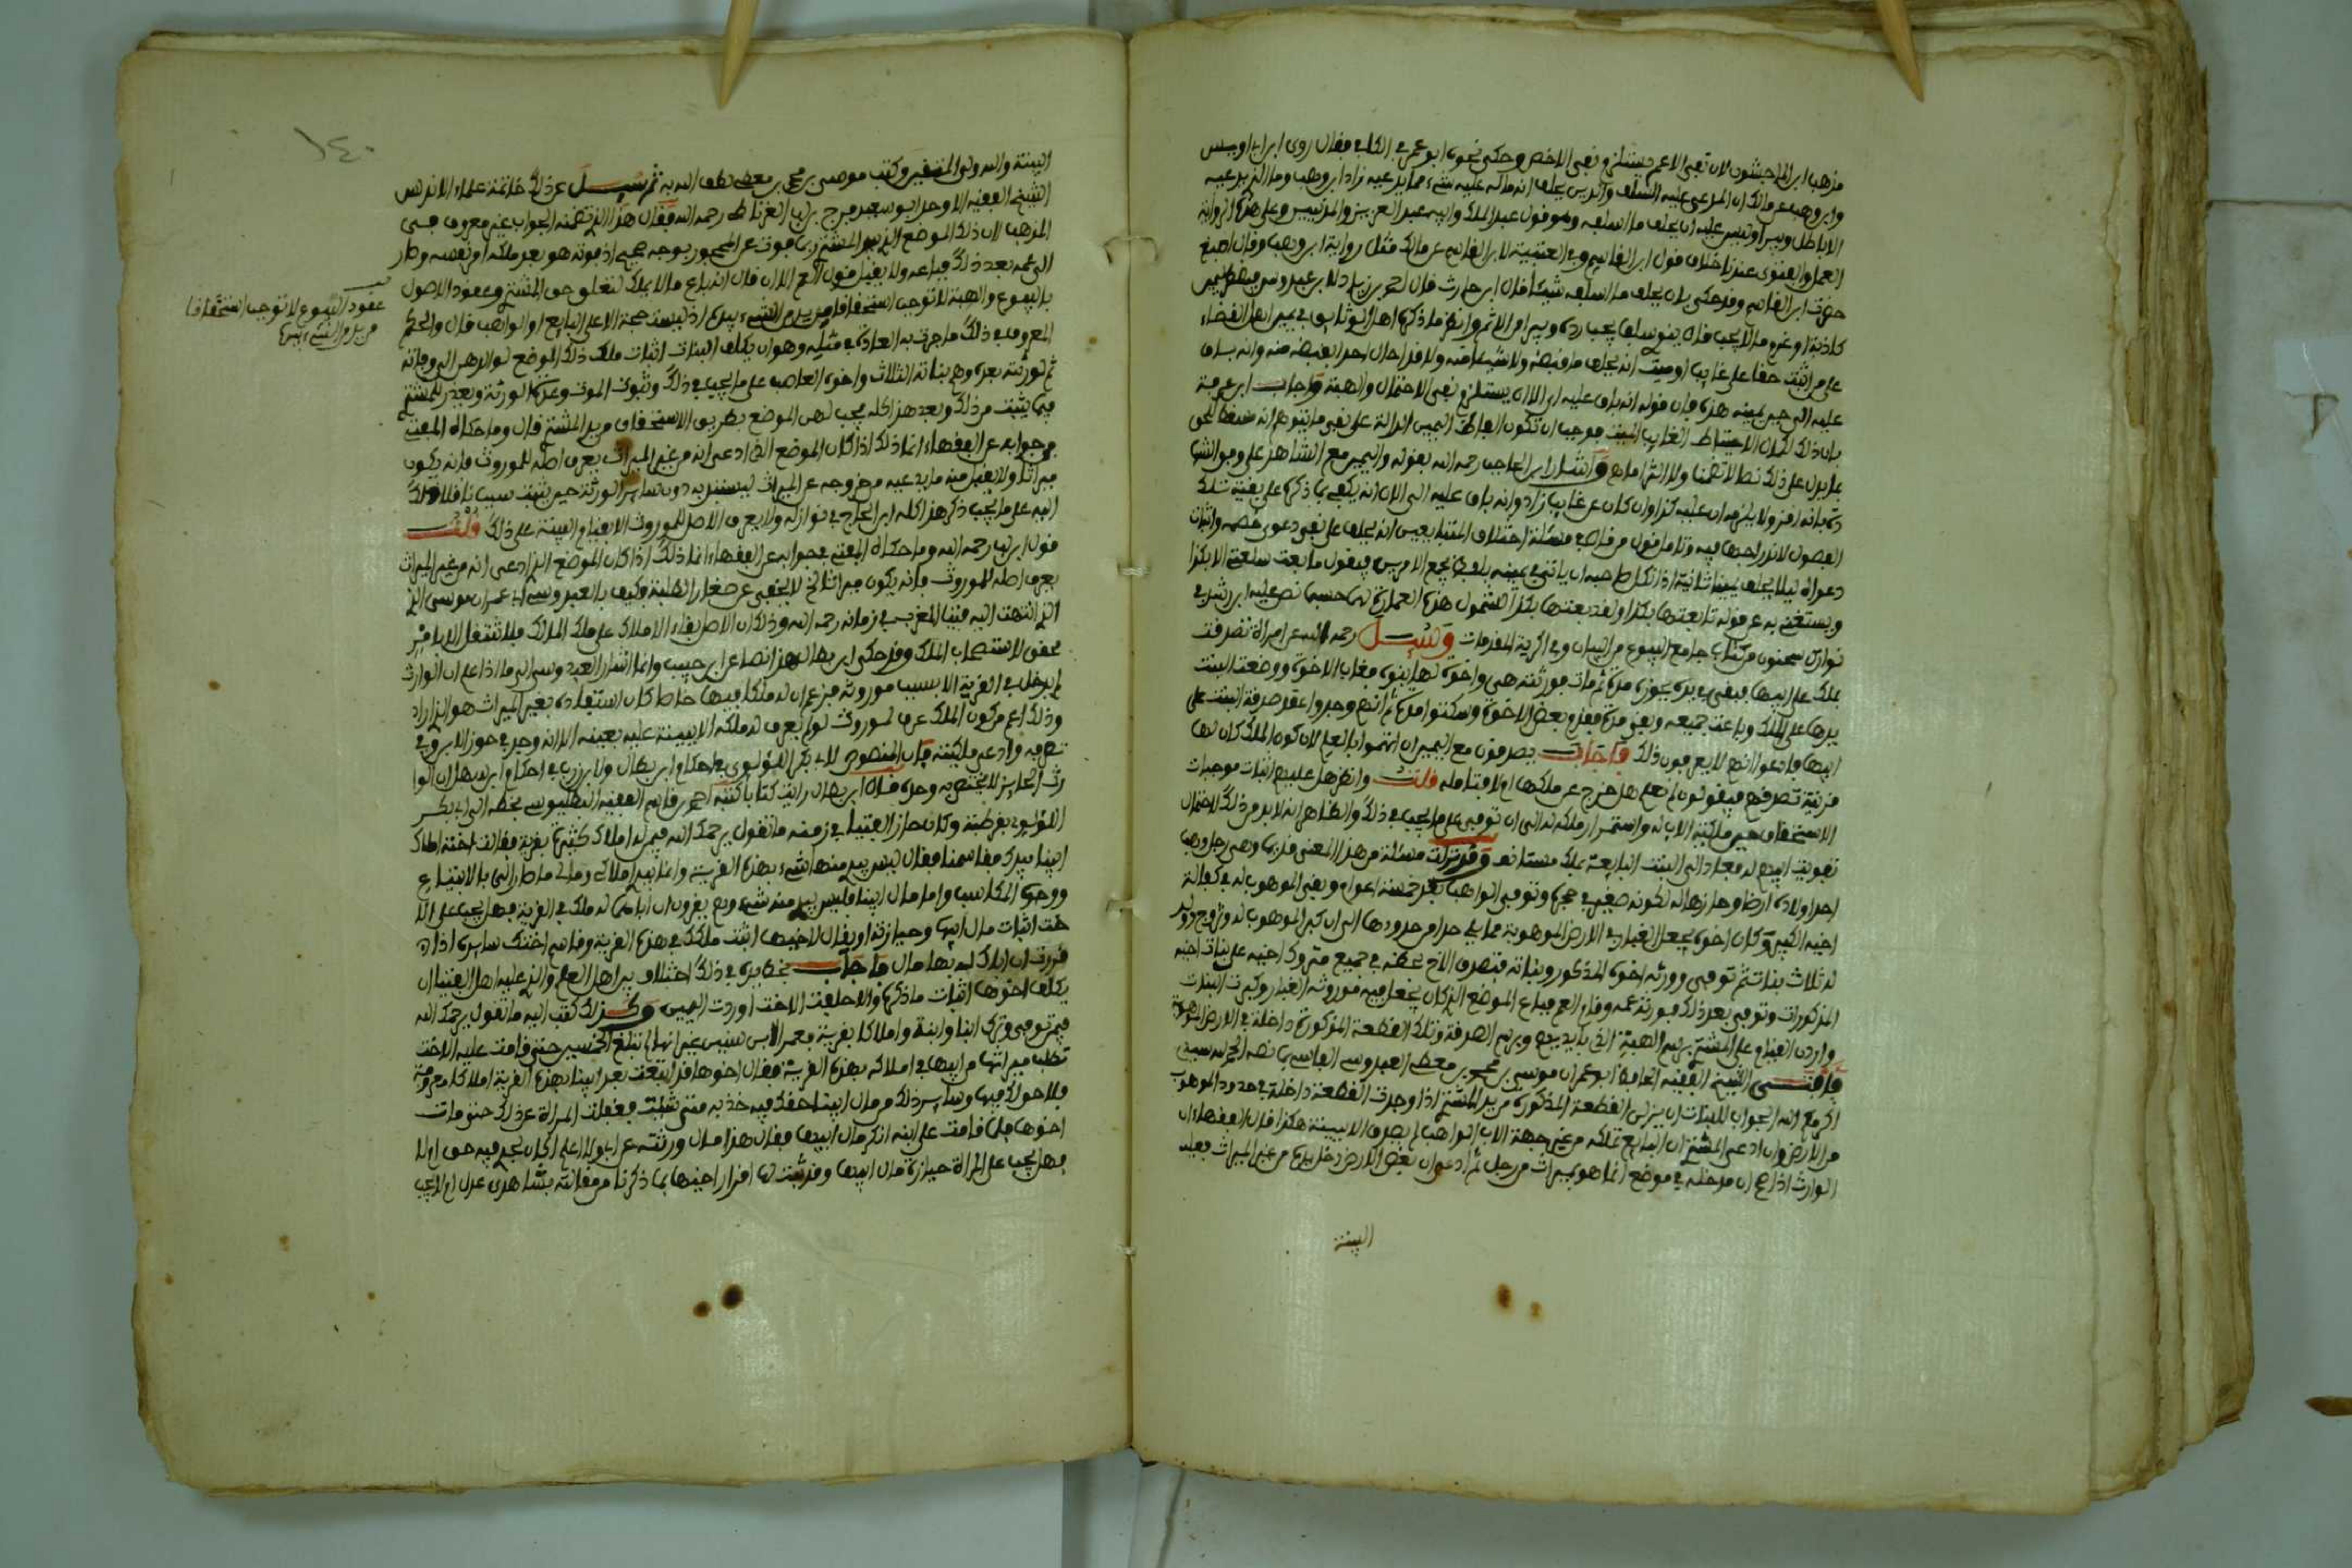 مذهب ابن الماجشون لان نفي الاعم يستلزم نفي الاخص وحكى نحوه ابو عمر في الكافي فقال روى ابن ابي اويس
وابن وهب عن مالك ان المدعى عليه السلف والدين يحلف انه ماله عليه شيء مما يدعيه زاد ابن وهب وما الذي يدعيه
الا باطل ويبرا وليس عليه ان يحلف ما اسلفه وهو قول عبد الملك وابيه عبد العزيز والمدنيين وعلى هذه الرواية
العمل والفتوى عندنا خلاف قول ابن القاسم وفي العتبية لابن القاسم عن مالك مثل رواية ابن وهب وقال اصبغ
ابن القاسم وقد حكى بان يحلف ما اسلفه شيئا قال ابن حارث قال احمد بن زياد لابن عبدوس
كاذبة او غرم ما لا يجب قال ينوي سلفا يجب رده ويبرا من الاثم وانظر ما ذكره اهل الوثائق في يمين القضاء
على من اثبت حقا على غايب او ميت انه يحلف ما قبضه ولا شيئا منه ولا قد احال احدا بقبضه منه وانه باق
عليه الى حين يمينه هذه فان قوله انه باق عليه الى الان يستلزم نفي الاحتمال والهبة واجاب ابن عرفة
بان ذلك لمكان الاحتياط للغايب والميت فوجب ان تكون الفاظ اليمين الدالة على نفي ما يتوهم انه مسقط للحق
ما يدل على ذلك نصا لا تضمنا ولا التزاما واشار ابن الحاجب رحمه الله بقوله واليمين مع الشاهد على وفق الشهادة
بانه اقر ولا يلزمه ان عليه كذا وان كان عن غايب زاد وانه باق عليه الى الان انه يكفي بما ذكر على بقية تلك
الفصول لاندراجها فيه وتامل قول من قال في مسئلة اختلاف المتبايعين انه يحلف على نفي دعوى خصمه واثبات
دعواه ليلا يحلف يمينا ثانية اذا نكل صاحبه ان ياتي في يمينه بلفظ يجمع الامرين فيقول ما بعت سلعتي الا بكذا
ويستغني به عن قوله لم ابعتها بكذا ولقد بعتها بكذا لشمول هذه العبارة لهما حسبما نص عليه ابن رشد في
نوازل سحنون من كتاب جامع البيوع من البيان وفي اكرية المقدمات وسئل رحمه الله عن امراة تصرفت
بملك على ابيها فبقي في يده يحوزه مدة ثم مات فورثته هي واخوة لها بنوه فغاب الاخوة ووضعت البنت
يدها على الملك وباعت جميعه وبقي مدة فقدم بعض الاخوة وسكتوا مدة ثم انهم وجدوا عقد صدقة البنت على
ابيها فادعوا انهم لا يعرفون ذلك فاجاب يصدقون مع اليمين ان اتهموا بالعلم لان كون الملك كان لها
قرينة تصرفهم فيقولون لم نعلم هل خرج عن ملكها ام لا فتامله قلت وانظر هل عليهم اثبات موجبات
الاستحقاق من ملكية الاب له واستمرار ملكه له الى ان توفي على ما يجب في ذلك والظاهر انه لا بد من ذلك لاحتمال
تفويت ابيهم له فعاد الى البنت البايعة بملك مستانف وقد نزلت مسئلة من هذا المعنى قديما وهي رجل وهب
احد اولاده ارضا وحازها له لكونه صغيرا في حجره وتوفي الواهب بعد خمسة اعوام وبقي الموهوب له في كفالة
اخيه الكبير وكان اخوه يجعل الغبار في الارض الموهوبة مما يلي حدا من حدودها الى ان كبر الموهوب له وتزوج وولد
له ثلاث بنات ثم توفي وورثه اخوه المذكور وبناته فتصرف الاخ بحظه في جميع متروك اخيه على بنات اخيه
المذكورات وتوفي بعد ذلك فورثه عمه وقام العم فباع الموضع الذي كان يجعل فيه موروثه الغبار وكبرت البنات
واردن القيام على المشتري برسم الهبة التي بايديهم وبرسم الصدقة وتلك القطعة المذكورة داخلة في الارض الموهوبة
فافتى الشيخ الفقيه الحافظ ابو عمران موسى بن محمد بن معطي العبدوسي الفاسي بما نصه الحمد لله سيدي
اكرمكم الله الجواب للبنات ان ينزلن القطعة المذكورة من يد المشتري اذا وجدت القطعة داخلة في حدود الموهوب
من الارض وان ادعى المشتري ان البايع تملكه من غير جهة الاب الواهب لم يصدق الا ببينة هكذا قال الفقهاء ان
الوارث اذا علم ان مدخله في موضع انما هو بميراث من رجل ثم ادعى ان بعض الارض دخل بيده من غير الميراث فعليه
البينة
١٤٠
البينة والله ولي المتقين وكتب موسى بن محمد بن معطي لطف الله به ثم سئل عن ذلك خاتمة علماء الاندلس
الشيخ الفقيه الاوحد ابو سعيد فرج بن لب الغرناطي رحمه الله فقال هذا الذي تضمنه الجواب غير معروف في
المذهب لان ذلك الموضع الذي بيد المشتري بموت عن المحجور بوجه صحيح اذ موته هو بعد ملكه امر نفسه وصار
الى عمه بعد ذلك فباعه ولا يقبل قول العم الان فان انه باع ما لا يملك لتعلق حق المشتري وعقود الاصول
بالبيوع والهبة لا توجب استحقاقا من يد من الشيء بيده اذ ليست حجة الا على البايع او الواهب قال والحكم
المعروف في ذلك ما جرت به العادة في مثله وهو ان يكلف البنات اثبات ملك ذلك الموضع لوالدهن الى وفاته
ثم لورثته بعده وهم بناته الثلاث واخوه العاصب على ما يجب في ذلك وثبوت الموت وعدة الورثة ويعذر للمشتري
فيما يثبت من ذلك وبعد هذا كله يجب لهن الموضع بطريق الاستحقاق من يد المشتري قال وما حكاه المفتي
في جوابه عن الفقهاء انما ذلك اذا كان الموضع الذي ادعى انه من غير الميراث يعرف اصله للموروث فانه يكون
ميراثا ولا يقبل منه ما يدعيه من خروجه عن الميراث ليستبد به دون ساير الورثة حتى يثبت سببا ناقلا لذلك
اليه على ما يجب ذكر هذا كله ابن الحاج في نوازله ولا يعرف الاصل للموروث الا بقيام البينة على ذلك قلت
قول ابن لب رحمه الله وما حكاه المفتي في جوابه عن الفقهاء انما ذلك اذا كان الموضع الذي ادعى انه من غير الميراث
يعرف اصله للموروث فانه يكون ميراثا الخ لا يخفى عن صغار الطلبة وكيف بالعبدوسي ابي عمران موسى الذي
الذي انتهت اليه فتيا المغرب في زمانه رحمه الله وذلك ان الاصل بقاء الاملاك على ملك المالك فلا تنتقل الا بامر
محقق لاستصحاب الملك وقد حكى ابن بطال هذا نصا عن ابن حبيب وانما اشار العبدوسي الى ما اذا علم ان الوارث
لم يدخل في القرية الا بسبب موروثه فزعم ان له ملكا فيها خاصا كان استفاده بغير الميراث هو الذي اراد
وذلك اعم من كون الملك عرف لموروثه لو لم يعرف له ملكه الا ببينة عليه بعينه الا انه وجد في حوز الابن وفي
تصرفه وادعى ملكيته فان المنصوص لابي بكر اللؤلؤي في احكام ابن بطال ولابن زرب في احكام ابن سهل ان الوا
رث الحايز لا يختص به وحده قال ابن بطال رايت كتابا كتبه احمد بن قاسم الفقيه البطليوسي بخطه الى ابي بكر
اللؤلؤي بقرطبة وكان مدار الفتيا في زمنه ما تقول يرحمك الله فيمن له املاك كثيرة بقرية فقالت اخته املاك
ابينا بيدك مقاسمنا فقال ليس بيدي منها شيء بهذه القرية وانما بيدي املاكي ومالي ما صار الي بالابتياع
ووجوه المكاسب واما مال ابينا فليس بيدي منه شيء وهم يقرون ان اباهما له ملك في القرية فهل يجب على الا
خت اثبات مال ابيها وحيازته او يقال لاخيها اثبت ملكك في هذه القرية وقاسم اختك ساير ذلك اذا
قررت ان اباك له بها مال فاجاب بخط يده في ذلك اختلاف بين اهل العلم والذي عليه اهل الفتيا ان
يكلف اخوها اثبات ما ذكره والا حلفت الاخت او ردت اليمين وكذلك كتب اليه ما تقول يرحمك الله
فيمن توفي وترك ابنا وابنة واملاكا بقرية فعمر الابن سنين غير انها لم تبلغ الخمسين حتى قامت عليه الاخت
تطلب ميراثها من ابيها في املاكه بهذه القرية فقال اخوها قد ابتعت بعد ابينا بهذه القرية املاكا معروفة
فلا حق لك فيها وساير ذلك من مال ابينا حقك فيه خذيه متى شئت فغفلت المراة عن ذلك حتى مات
اخوها فلما قامت على ابنه انكر مال ابيها وقال هذا مال ورثته عن ابي ولا اعلم اكان لجدي فيه حق ام لا
فهل يجب على المراة حيازة مال ابيها وقد ثبت لها اقرار اخيها بما ذكرنا من مقالته بشاهدي عدل ام لا يجب
عقود البيوع لا توجب استحقاقا
من يد من الشيء بيده